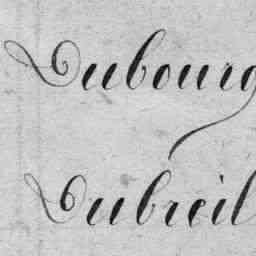 Dubourg
Dubreil